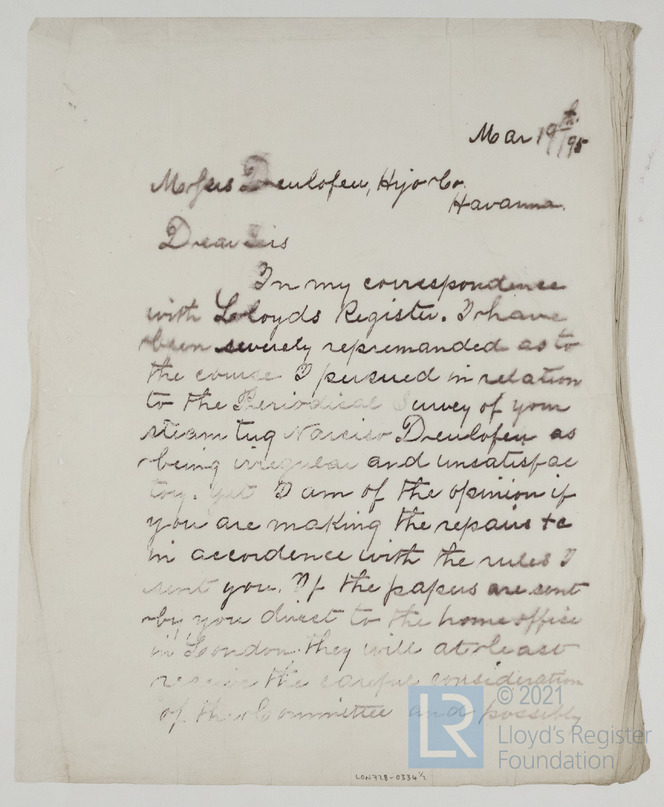 Mar 19th/95
Messrs Deulofeu, Hijo & Co.
Havanna.
Dear Sirs
In my correspondence
with Lloyds Register. I have
been severely repremanded as to
the course I pursued in relation
to the Periodical Survey of your
steam tug Narciso Deulofeu as
being irregular and unsatisfac
tory. Yet I am of the opinion if
you are making the repairs &c
in accordence with the rules I
sent you. If the papers are sent
by you direct to the home office
in London they will at least
receive the careful consideration
of the Committee and possibly
LON728-0334 1/2
LR
© 2021
Lloyd's Register
Foundation